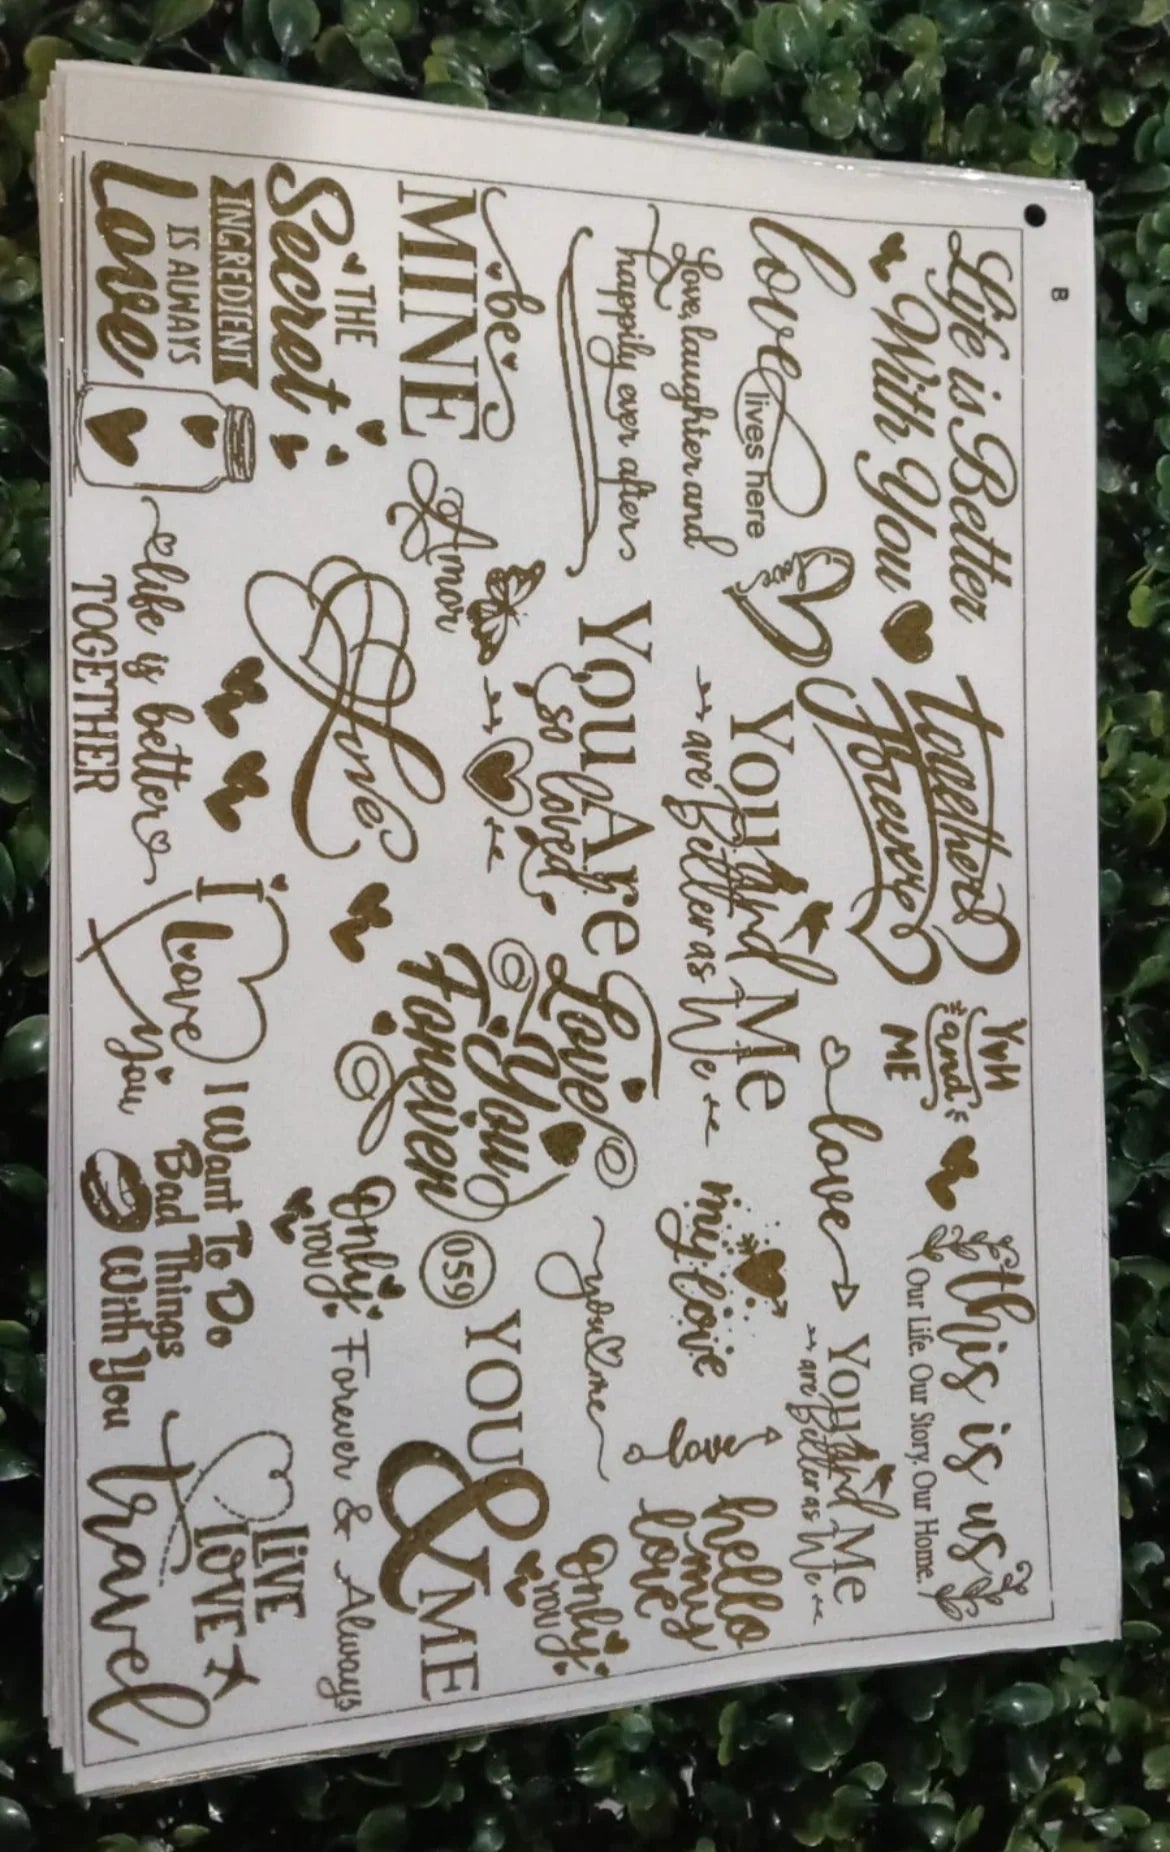 B
Life is Better
With You
together
Forever
You
and
ME
this is us
Our Life. Our Story. Our Home.
love
lives here
Love
You And Me
are Better as We
love
You And Me
are Better as We
Love, laughter and
happily ever after
my love
Love
hello
my
love
You Are
so loved
Love
You
Forever
you me
Only
YOU
be
MINE
Amor
059
YOU
&
ME
THE
Secret
INGREDIENT
IS ALWAYS
Love
Love
Only
YOU
Forever & Always
life is better
TOGETHER
I
Love
You
I Want To Do
Bad Things
With You
LIVE
LOVE
travel